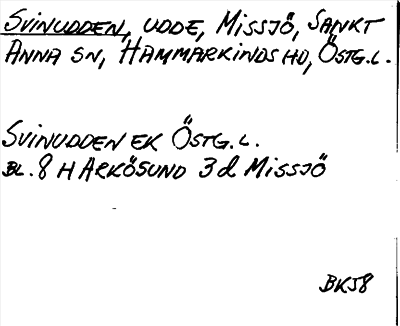 SVINUDDEN, UDDE, MISSJÖ, SANKT
ANNA SN, HAMMARKINDS HD, ÖSTG.L.
SVINUDDEN EK ÖSTG.L.
BL. 8 H ARKÖSUND 3d MISSJÖ
BKJ8